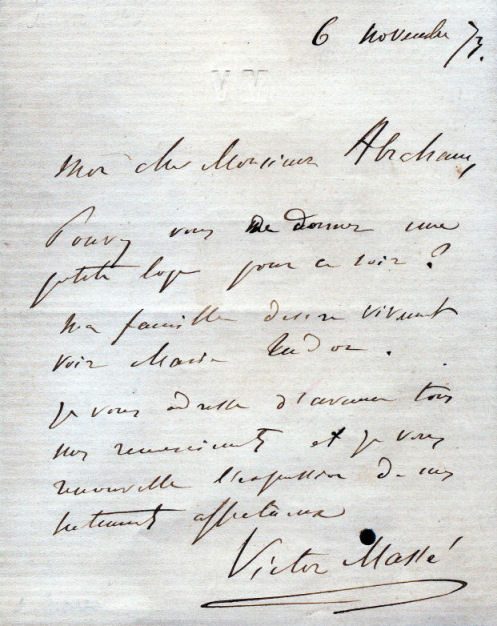 6 novembre 73.
V M
Mon cher Monsieur Abraham,
Pouvez vous me donner une
petite loge pour ce soir ?
Ma famille désire vivement
voir Marie Tudor.
Je vous adresse d'avance tous
mes remerciments et je vous
renouvelle l'expression de mes
sentiments affectueux
Victor Massé